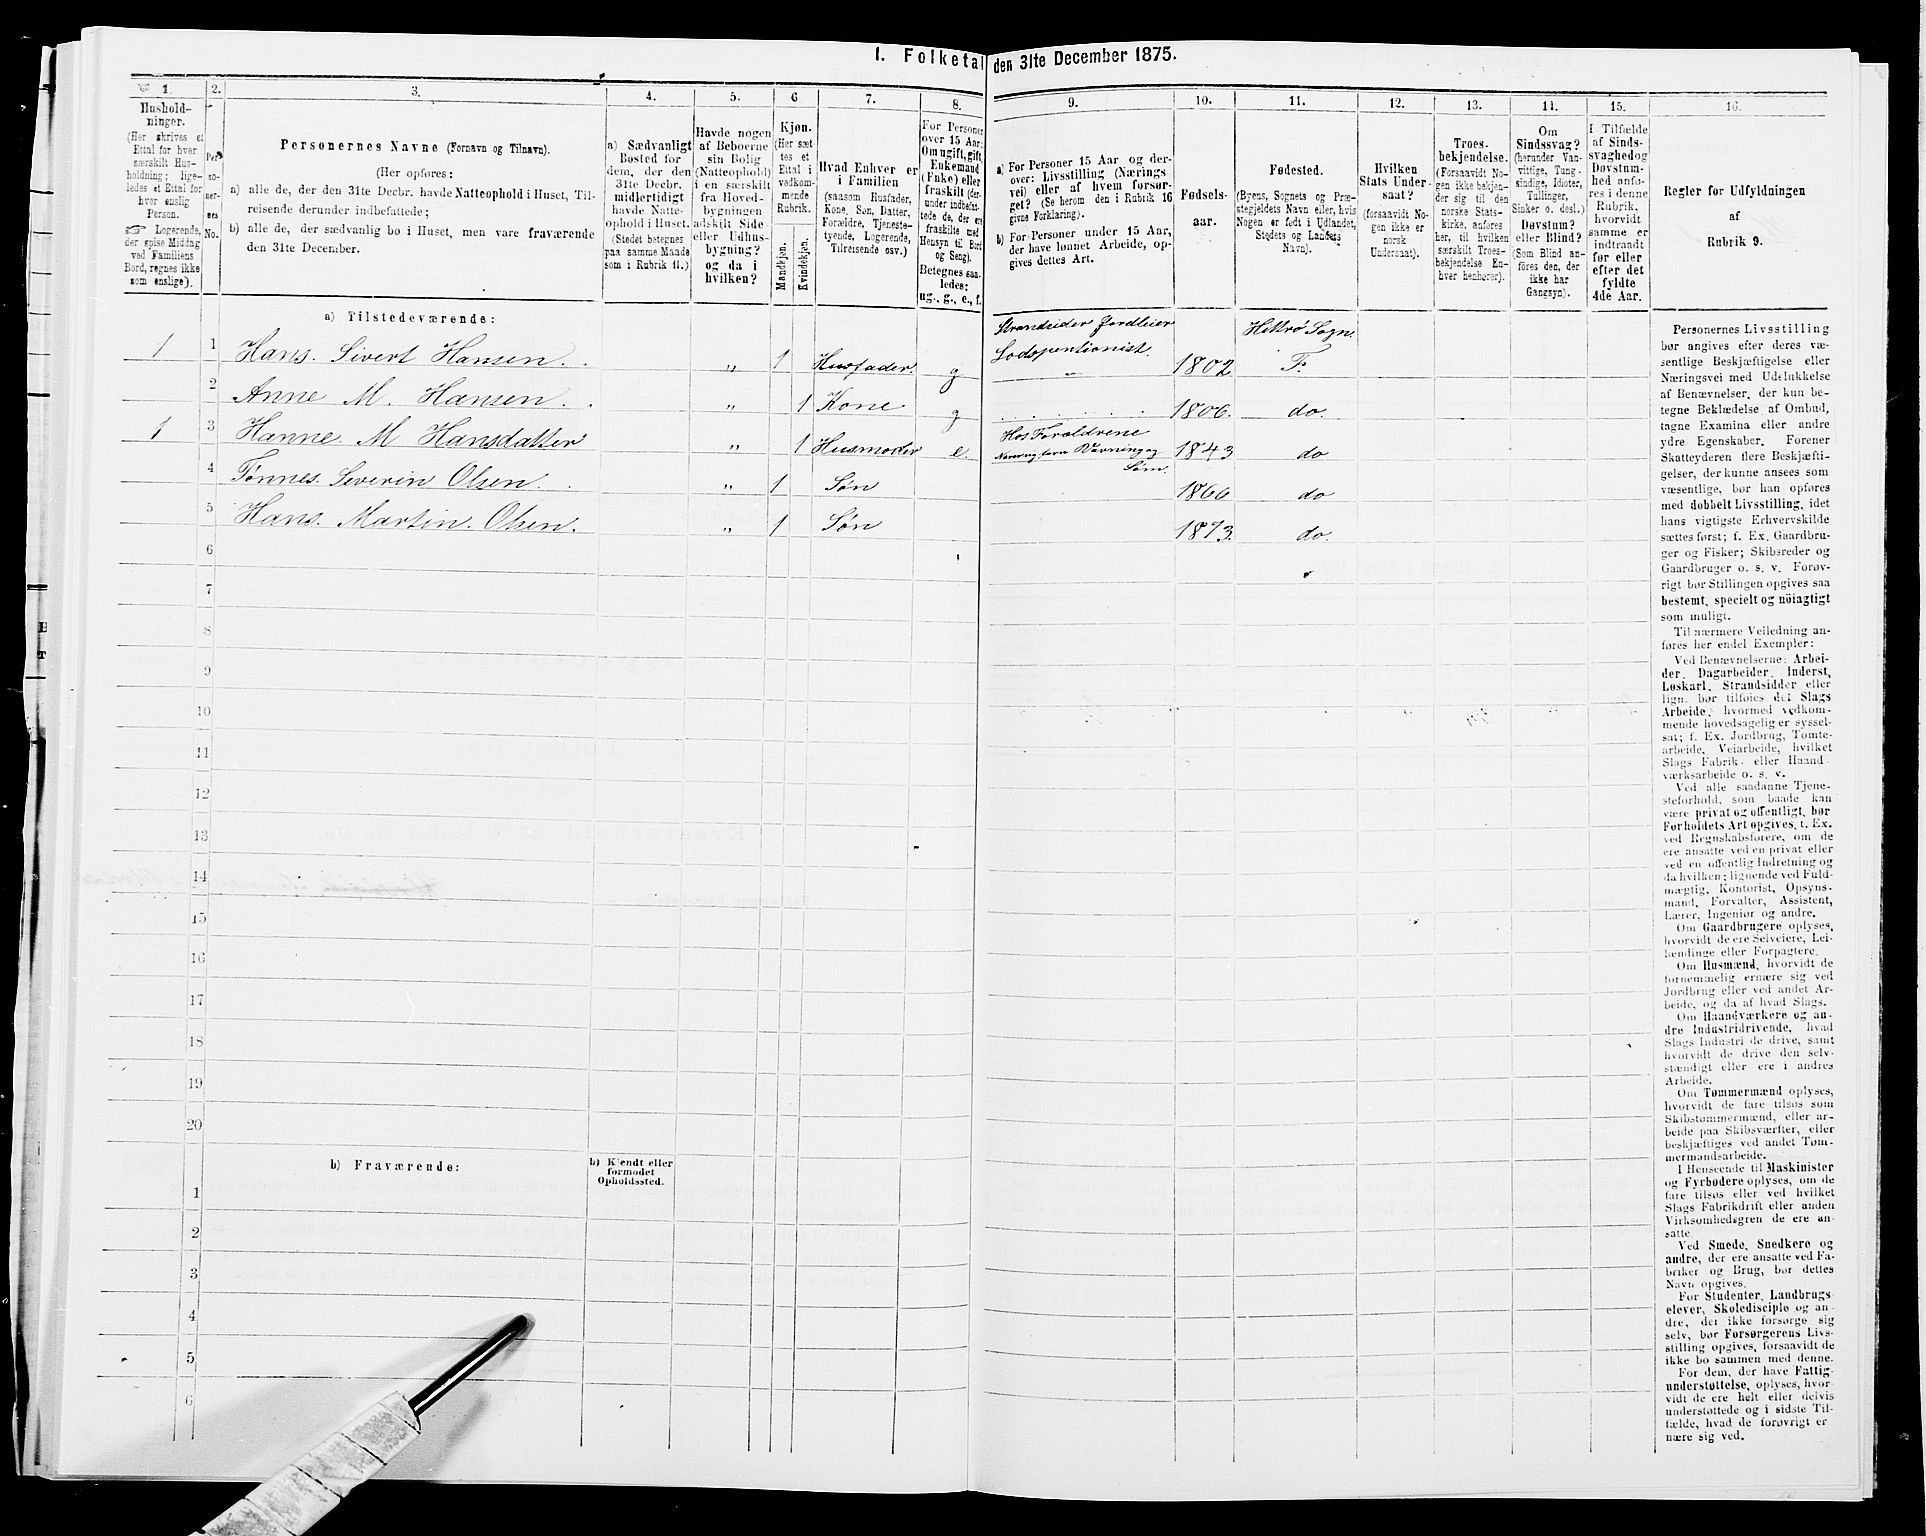 1. Folketal den 31te December 1875.
1.
Hushold-
ninger.
(Her skrives et
Ettal for hver
særskilt Hus-
holdning; lige-
ledes et Ettal for
hver enslig
Person.
☞ Logerende,
der spise Middag
ved Familiens
Bord, regnes ikke
som enslige).
2.
Per-
so-
ner-
nes
No.
3.
Personernes Navne (Fornavn og Tilnavn).
(Her opføres:
a) alle de, der den 31te Decbr. havde Natteophold i Huset, Til-
reisende derunder indbefattede;
b) alle de, der sædvanlig bo i Huset, men vare fraværende
den 31te December.
4.
a) Sædvanligt
Bosted for
dem, der den
31te Decbr.
midlertidigt
havde Natte-
ophold i Huset.
(Stedet betegnes
paa samme Maade
som i Rubrik 11.)
5.
Havde nogen
af Beboerne
sin Bolig
(Natteophold)
i en særskilt
fra Hoved-
bygningen
adskilt Side-
eller Udhus-
bygning?
og da i
hvilken?
6
Kjøn.
(Her sæt
tes et
Ettal i
vedkom-
mende
Rubrik.
Mandkjøn.
Kvindekjøn.
7.
Hvad Enhver er
i Familien
(saasom Husfader,
Kone, Søn, Datter,
Forældre, Tjeneste-
tyende, Logerende,
Tilreisende osv.)
8.
For Personer
over 15 Aar:
Om ugift, gift,
Enkemand
(Enke) eller
fraskilt (der-
under indbefat-
tede de, der ere
fraskilte med
Hensyn til Bord
og Seng).
Betegnes saa-
ledes:
ug., g., e., f.
9.
a) For Personer 15 Aar og der-
over: Livsstilling (Nærings
vei) eller af hvem forsør-
get? (Se herom den i Rubrik 16
givne Forklaring).
b) For Personer under 15 Aar,
der have lønnet Arbeide, op-
gives dettes Art.
10.
Fødsels-
aar.
11.
Fødested.
(Byens, Sognets og Præ-
stegjeldets Navn eller, hvis
Nogen er født i Udlandet,
Stedets og Landets
Navn).
12.
Hvilken
Stats Under-
saat?
(forsaavidt No-
gen ikke er
norsk
Undersaat).
13.
Troes-
bekjendelse.
(Forsaavidt No-
gen ikke bekjen-
der sig til den
norske Stats-
kirke, anføres
her, til hvilken
særskilt Troes-
bekjendelse En-
hver henhører).
14.
Om
Sindssvag?
(herunder Van-
vittige, Tung-
sindige, Idioter,
Tullinger,
Sinker o. desl.)
Døvstum?
eller Blind?
(Som Blind an-
føres den, der
ikke har
Gangsyn).
15.
I Tilfælde
af Sinds-
svaghed og
Døvstum-
hed anfø-
res i denne
Rubrik,
hvorvidt
samme er
indtraadt
før eller
efter det
fyldte
4de Aar.
16.
Regler for Udfyldningen
af
Rubrik 9.
a) Tilstedeværende:
Strandsider Jordleier Hittrø Sogn.
Lodspentionist.
1 1 Hans. Sivert Hansen . . „ 1 Husfader. g „ 1802 F
2 Anne M. Hansen . . „ 1 Kone g 1806. do.
Hos Forældrene
1 3 Hanne. M Hansdatter „ 1 Husmoder e. Vævning og 1843 do
Søm.
4 Tønnes. Severin Olsen. . „ 1 Søn 1866 do
5 Hans. Martin. Olsen. „ 1 Søn 1873. do.
6
7
8
9
10
11
12
13
14
15
16
17
18
19
20
b) Fraværende:
b) Kjendt eller
formodet
Opholdssted.
1
2
3
4
5
6
Personernes Livsstilling
bør angives efter deres væ-
sentlige Beskjæftigelse eller
Næringsvei med Udelukkelse
af Benævnelser, der kun be-
tegne Beklædelse af Ombud,
tagne Examina eller andre
ydre Egenskaber. Forener
Skatteyderen flere Beskjæfti-
gelser, der kunne ansees som
væsentlige, bør han opføres
med dobbelt Livsstilling, idet
hans vigtigste Erhvervskilde
sættes først; f. Ex. Gaardbru-
ger og Fisker; Skibsreder og
Gaardbruger o. s. v. Forøv-
rigt bør Stillingen opgives saa
bestemt, specielt og nöiagtigt
som muligt.
Til nærmere Veiledning an-
føres her endel Exempler:
Ved Benævnelserne: Arbei-
der, Dagarbeider, Inderst,
Løskarl, Strandsidder eller
lign. bør tilføies det Slags
Arbeide, hvormed vedkom-
mende hovedsagelig er syssel-
sat; f. Ex. Jordbrug, Tomte-
arbeide, Veiarbeide, hvilket
Slags Fabrik- eller Haand-
værksarbeide o. s. v.
Ved alle saadanne Tjene-
steforhold, som baade kan
være privat og offentligt, bør
Forholdets Art opgives, t. Ex.
ved Regnskabsførere, om de
ere ansatte ved en privat eller
ved en offentlig Indretning og
da hvilken; lignende ved Fuld-
mægtig, Kontorist, Opsyns-
mand, Forvalter, Assistent,
Lærer, Ingeniør og andre.
Om Gaardbrugere oplyses,
hvorvidt de ere Selveiere, Lei-
lændinge eller Forpagtere.
Om Husmænd, hvorvidt de
fornemmelig ernære sig ved
Jordbrug eller ved andet Ar-
beide, og da af hvad Slags.
Om Haandværkere og an-
dre Industridrivende, hvad
Slags Industri de drive, samt
hvorvidt de drive den selv-
stændigt eller ere i andres
Arbeide.
Om Tømmermænd oplyses,
hvorvidt de fare tilsøs som
Skibstømmermænd, eller ar-
beide paa Skibsværfter, eller
beskjæftiges ved andet Tøm-
mermandsarbeide.
I Henseende til Maskinister
og Fyrbødere oplyses, om de
fare tilsøs eller ved hvilket
Slags Fabrikdrift eller anden
Virksomhedsgren de ere an-
satte.
Ved Smede, Snedkere og
andre, der ere ansatte ved Fa-
briker og Brug, bør dettes
Navn opgives.
For Studenter, Landbrugs-
elever, Skoledisciple og an-
dre, der ikke forsørge sig
selv, bør Forsørgerens Livs-
stilling opgives, forsaavidt de
ikke bo sammen med denne.
For dem, der have Fattig-
understøttelse, oplyses, hvor-
vidt de ere helt eller delvis
understøttede og i sidste Til-
fælde, hvad de forøvrigt er-
nære sig ved.